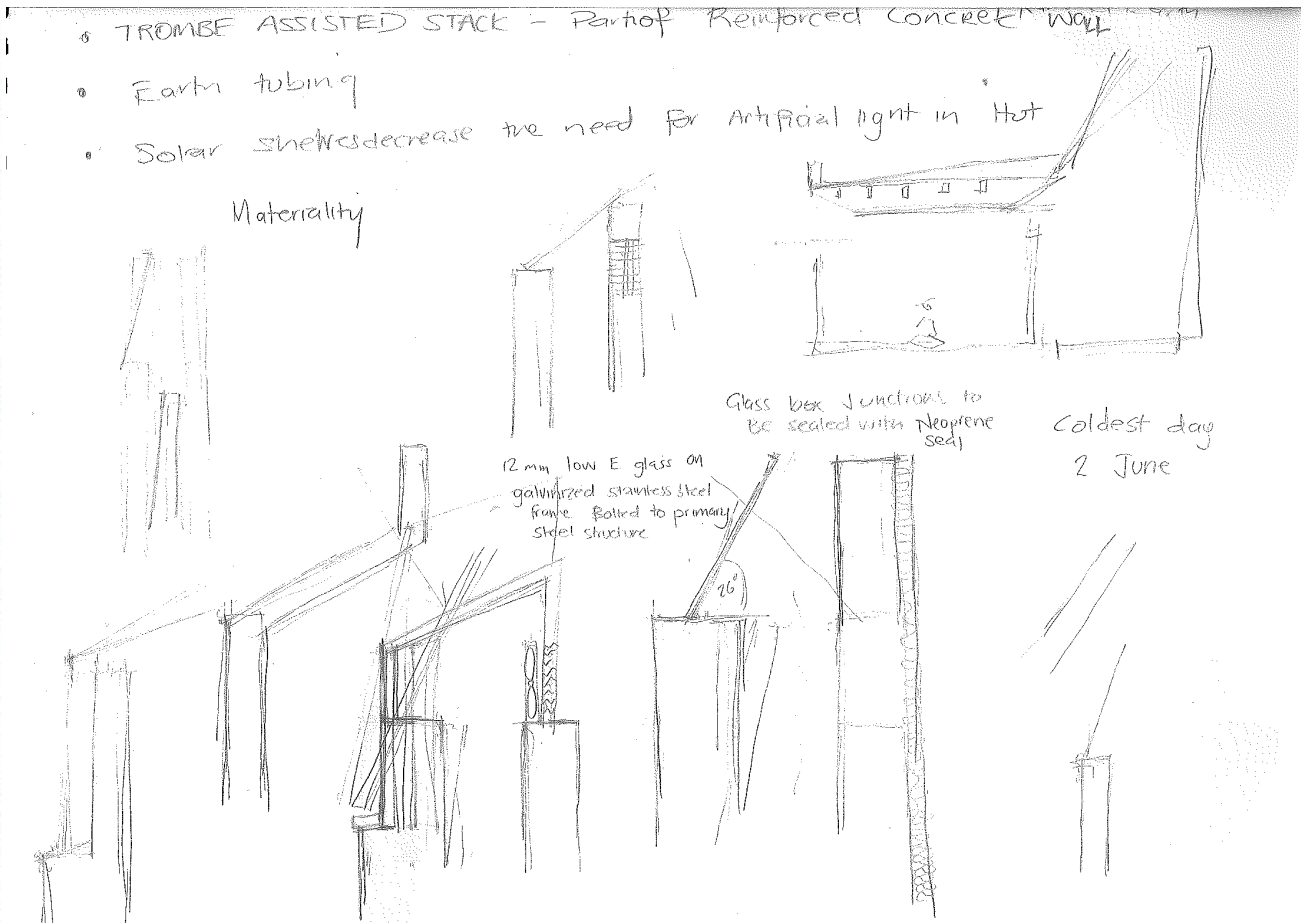 TROMBE ASSISTED STACK - Part of Reinforced Concrete Wall
Earth tubing
Solar shelves decrease the need for Artificial light in Hot
Materiality
Glass box Junctions to
Be sealed with Neoprene
seal
Coldest day
2 June
12 mm low E glass on
galvinized stainless steel
frame Bolted to primary
steel structure
26°